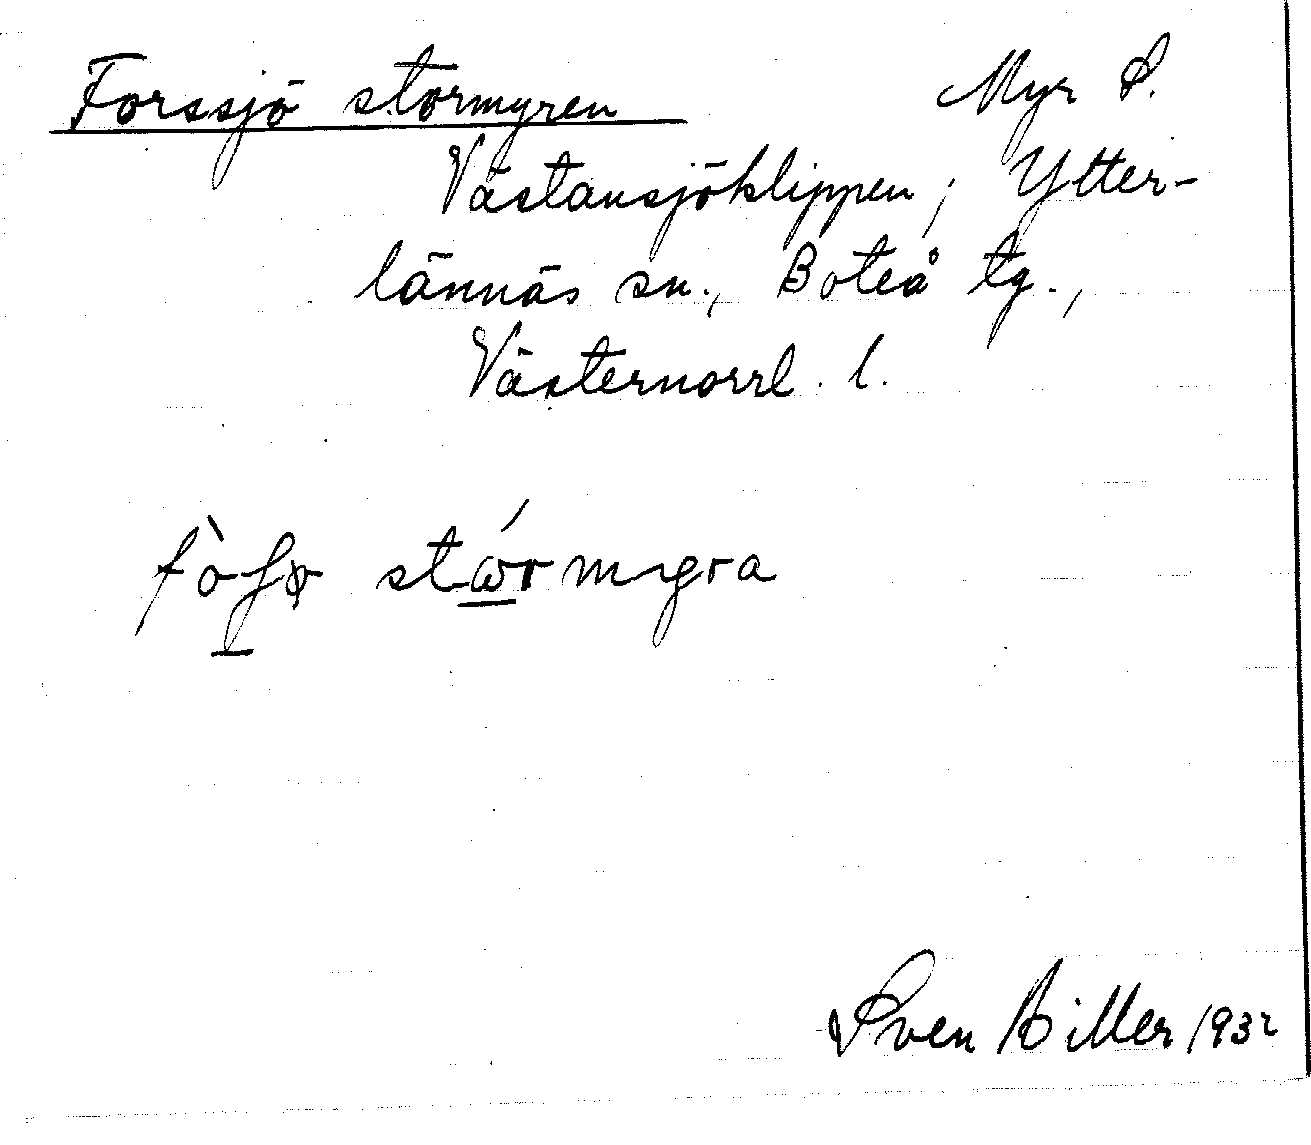 Forssjö stormyren Myr S.
Västansjöklippen, Ytter-
lännäs sn., Boteå tg.,
Västernorrl. l.
stώrmyra
Sven Biller 1932